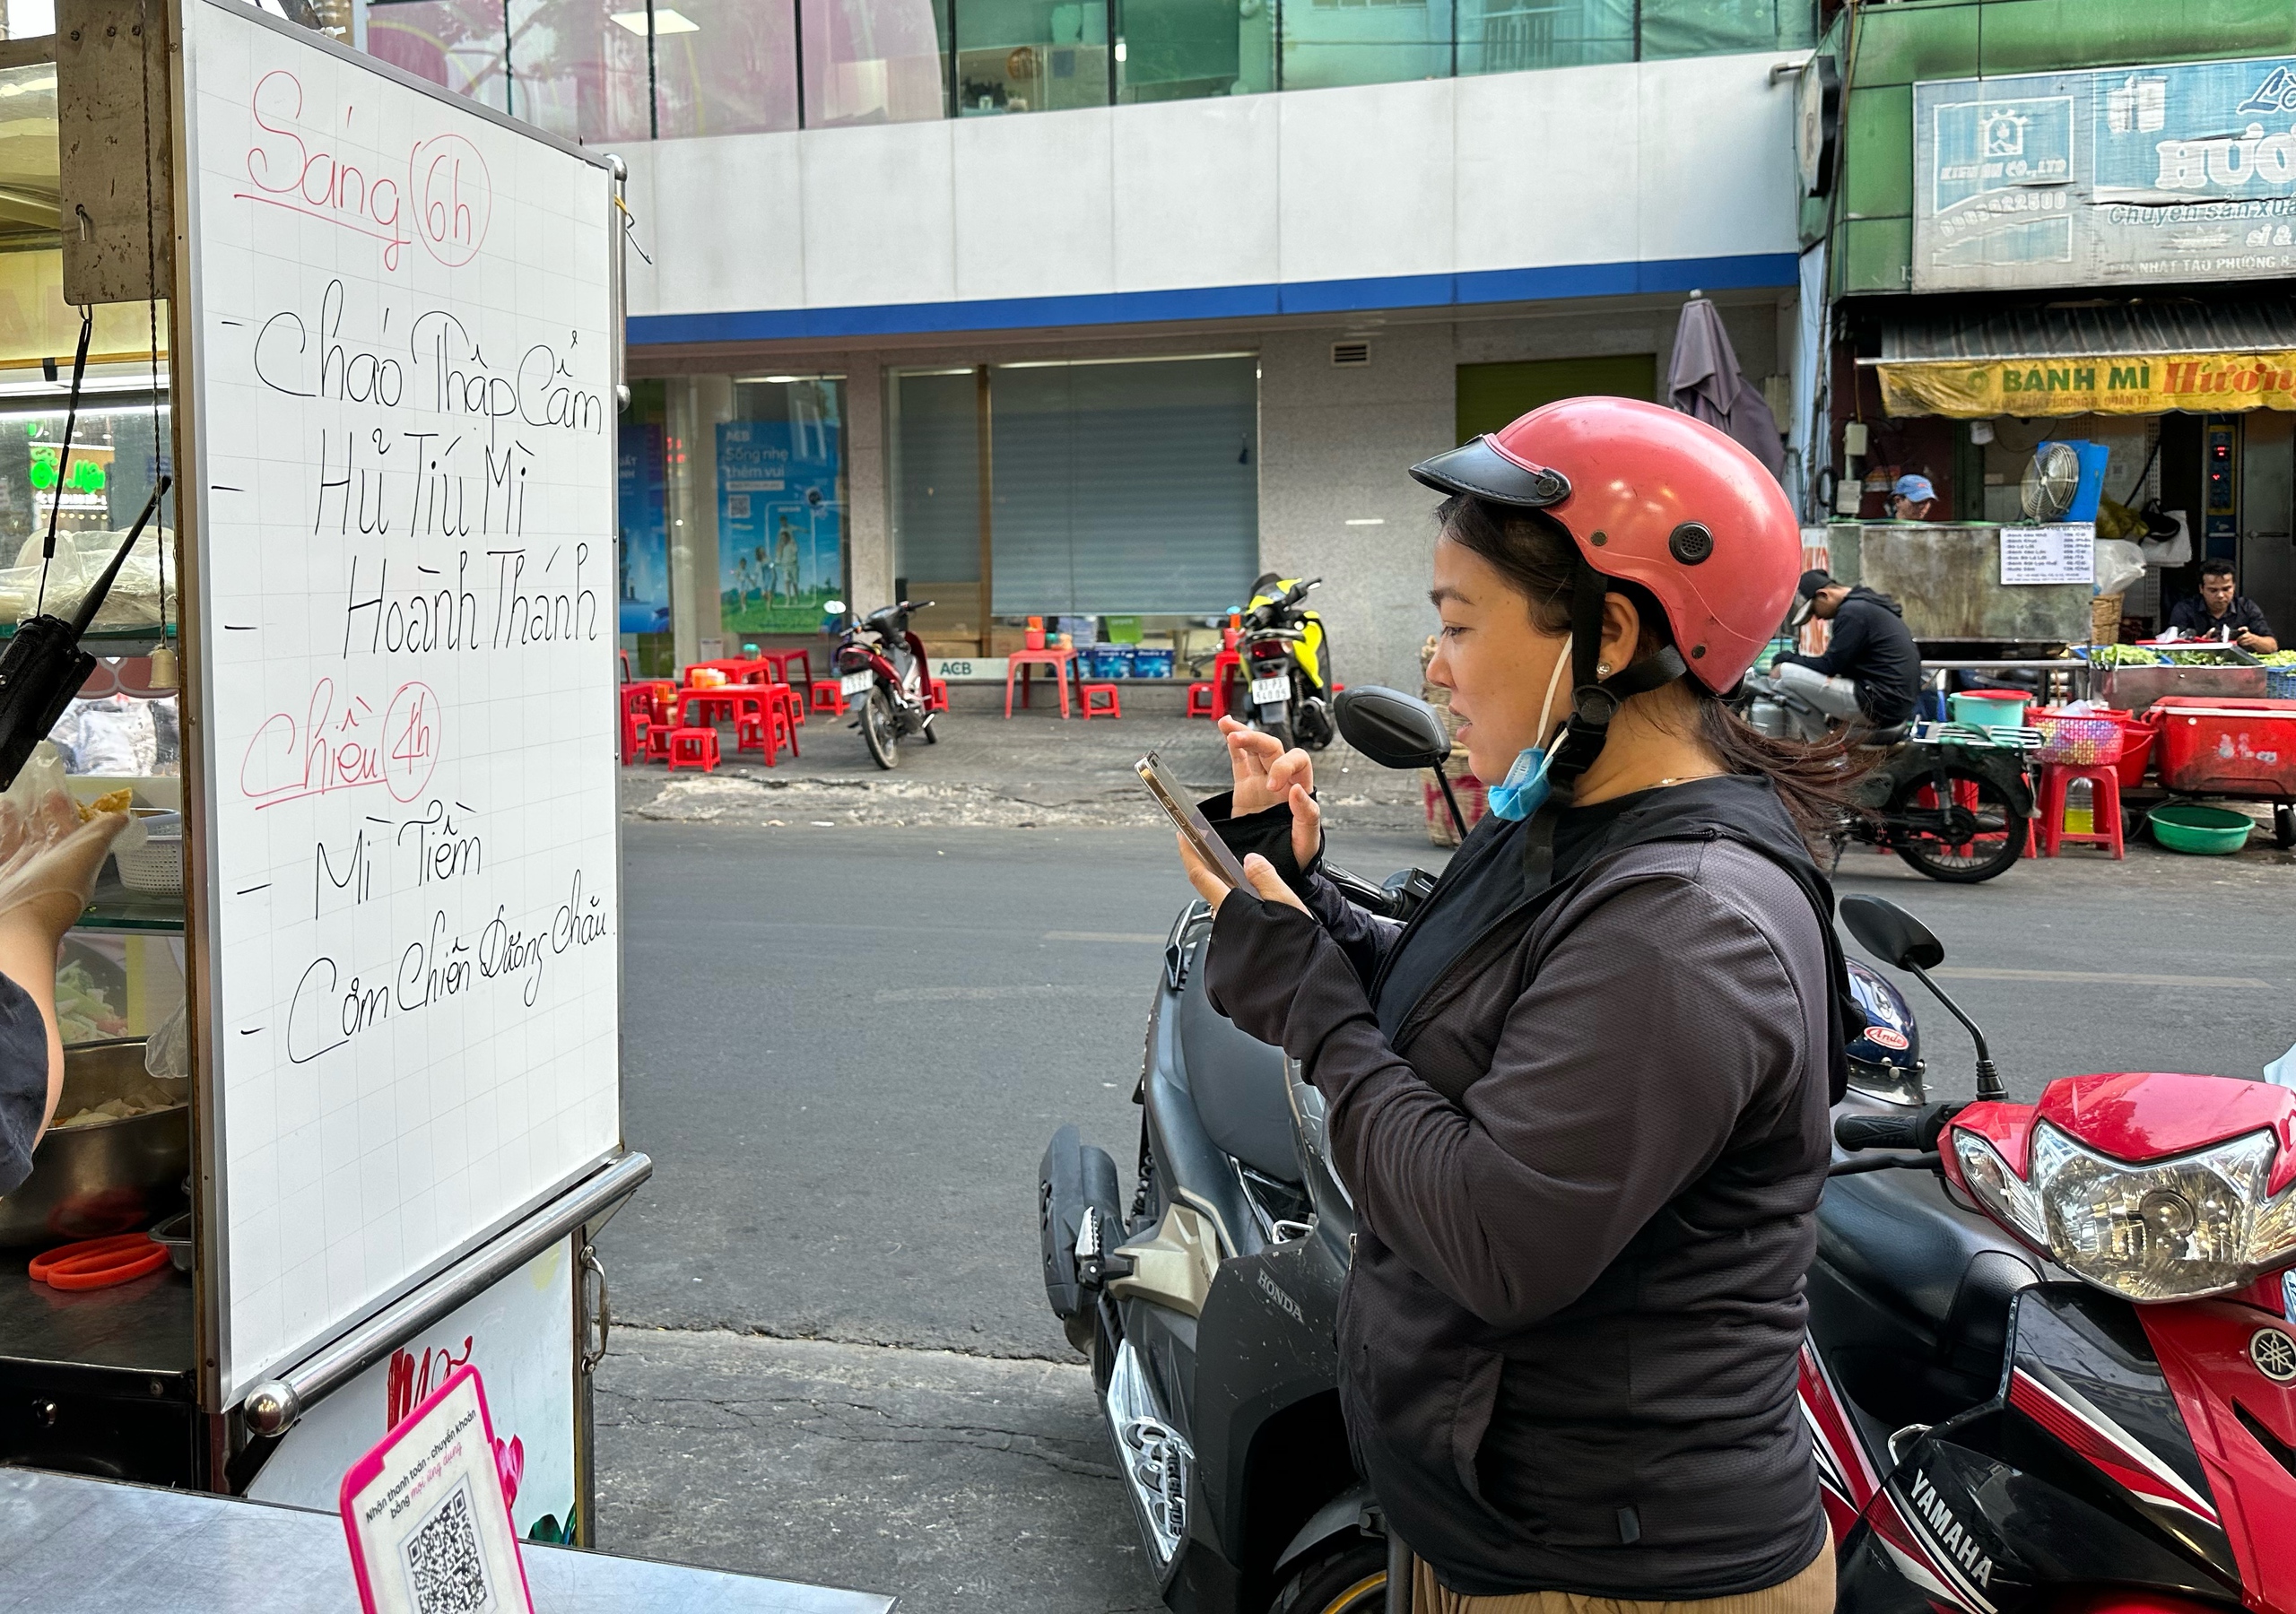 Sáng 6h
- Cháo Thập Cẩm
- Hủ Tíu Mì
- Hoành Thánh
Chiều 4h
- Mì Tiềm
- Cơm Chiên Dương Châu.
Nhận thanh toán - chuyển khoản
bằng mọi ứng dụng
ACB
Sống nhẹ
thêm vui
ACB
Chuyên sản xuấ
NHẬT TẢO PHƯỜNG 8
BÁNH MÌ Hươn
HONDA
YAMAHA
Arai